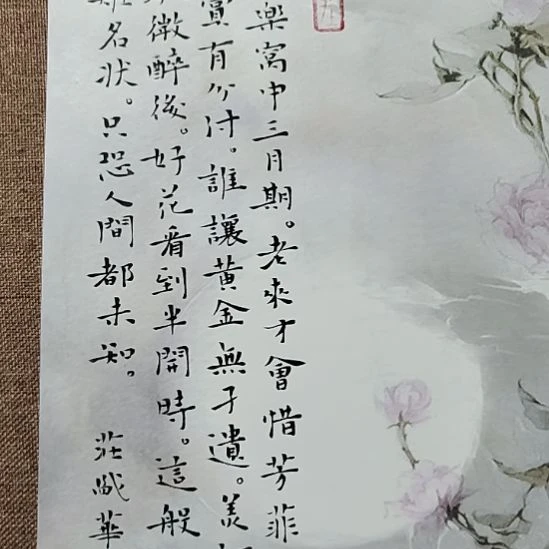 樂窩中三月期。老來才會惜芳菲
賞有分付。誰讓黃金無子遺。美
微醉後。好花看到半開時。這般
名狀。只恐人間都未知。 莊 華